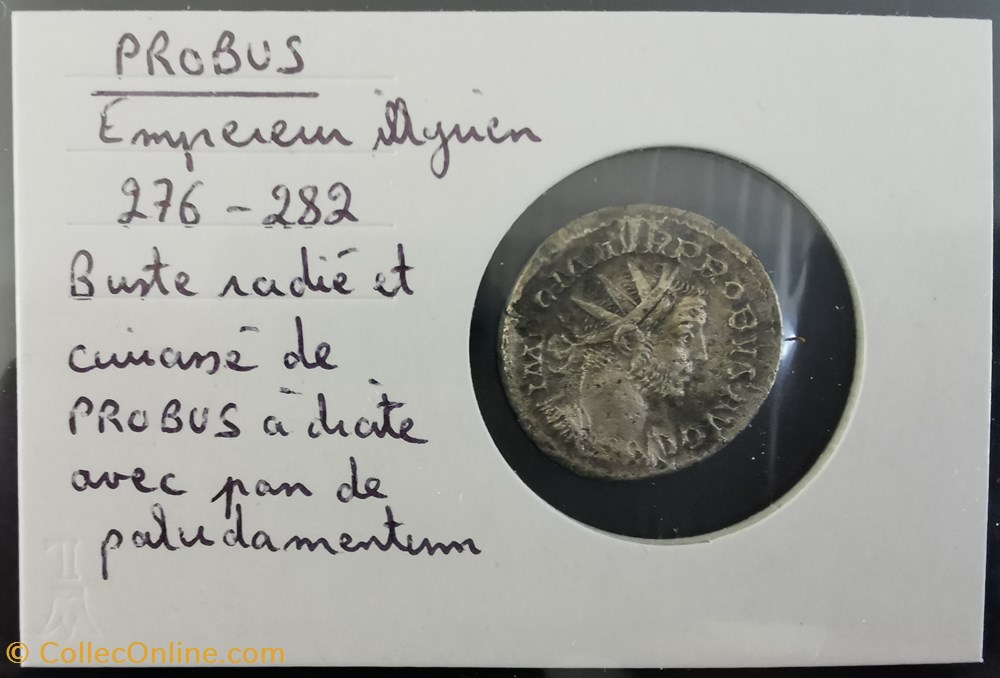 PROBUS
Empereur illyrien
276 - 282
Buste radié et
cuirassé de
PROBUS à droite
avec pan de
paludamentum
PROBVS AVG
© CollecOnline.com